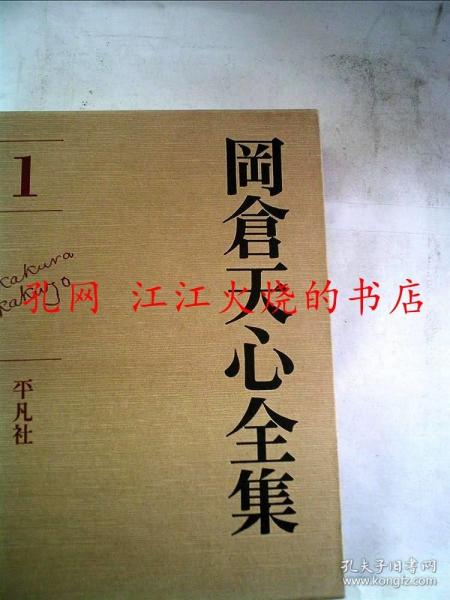 岡倉天心全集
1
kakura
kakuzo
平凡社
孔网 江江火烧的书店
孔夫子旧书网
www.kongfz.com